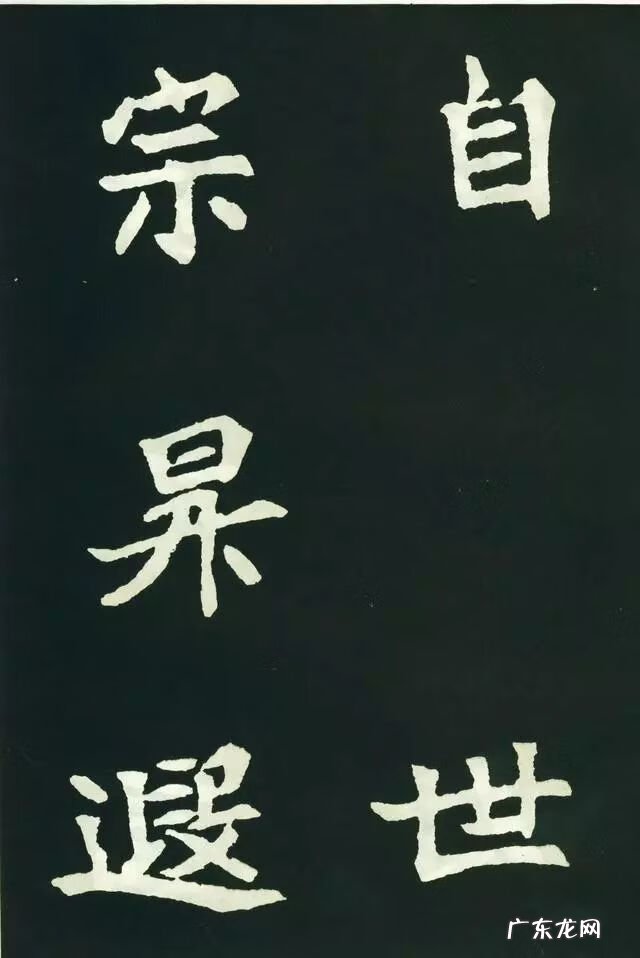 自世
宗昇遐
广东龙网